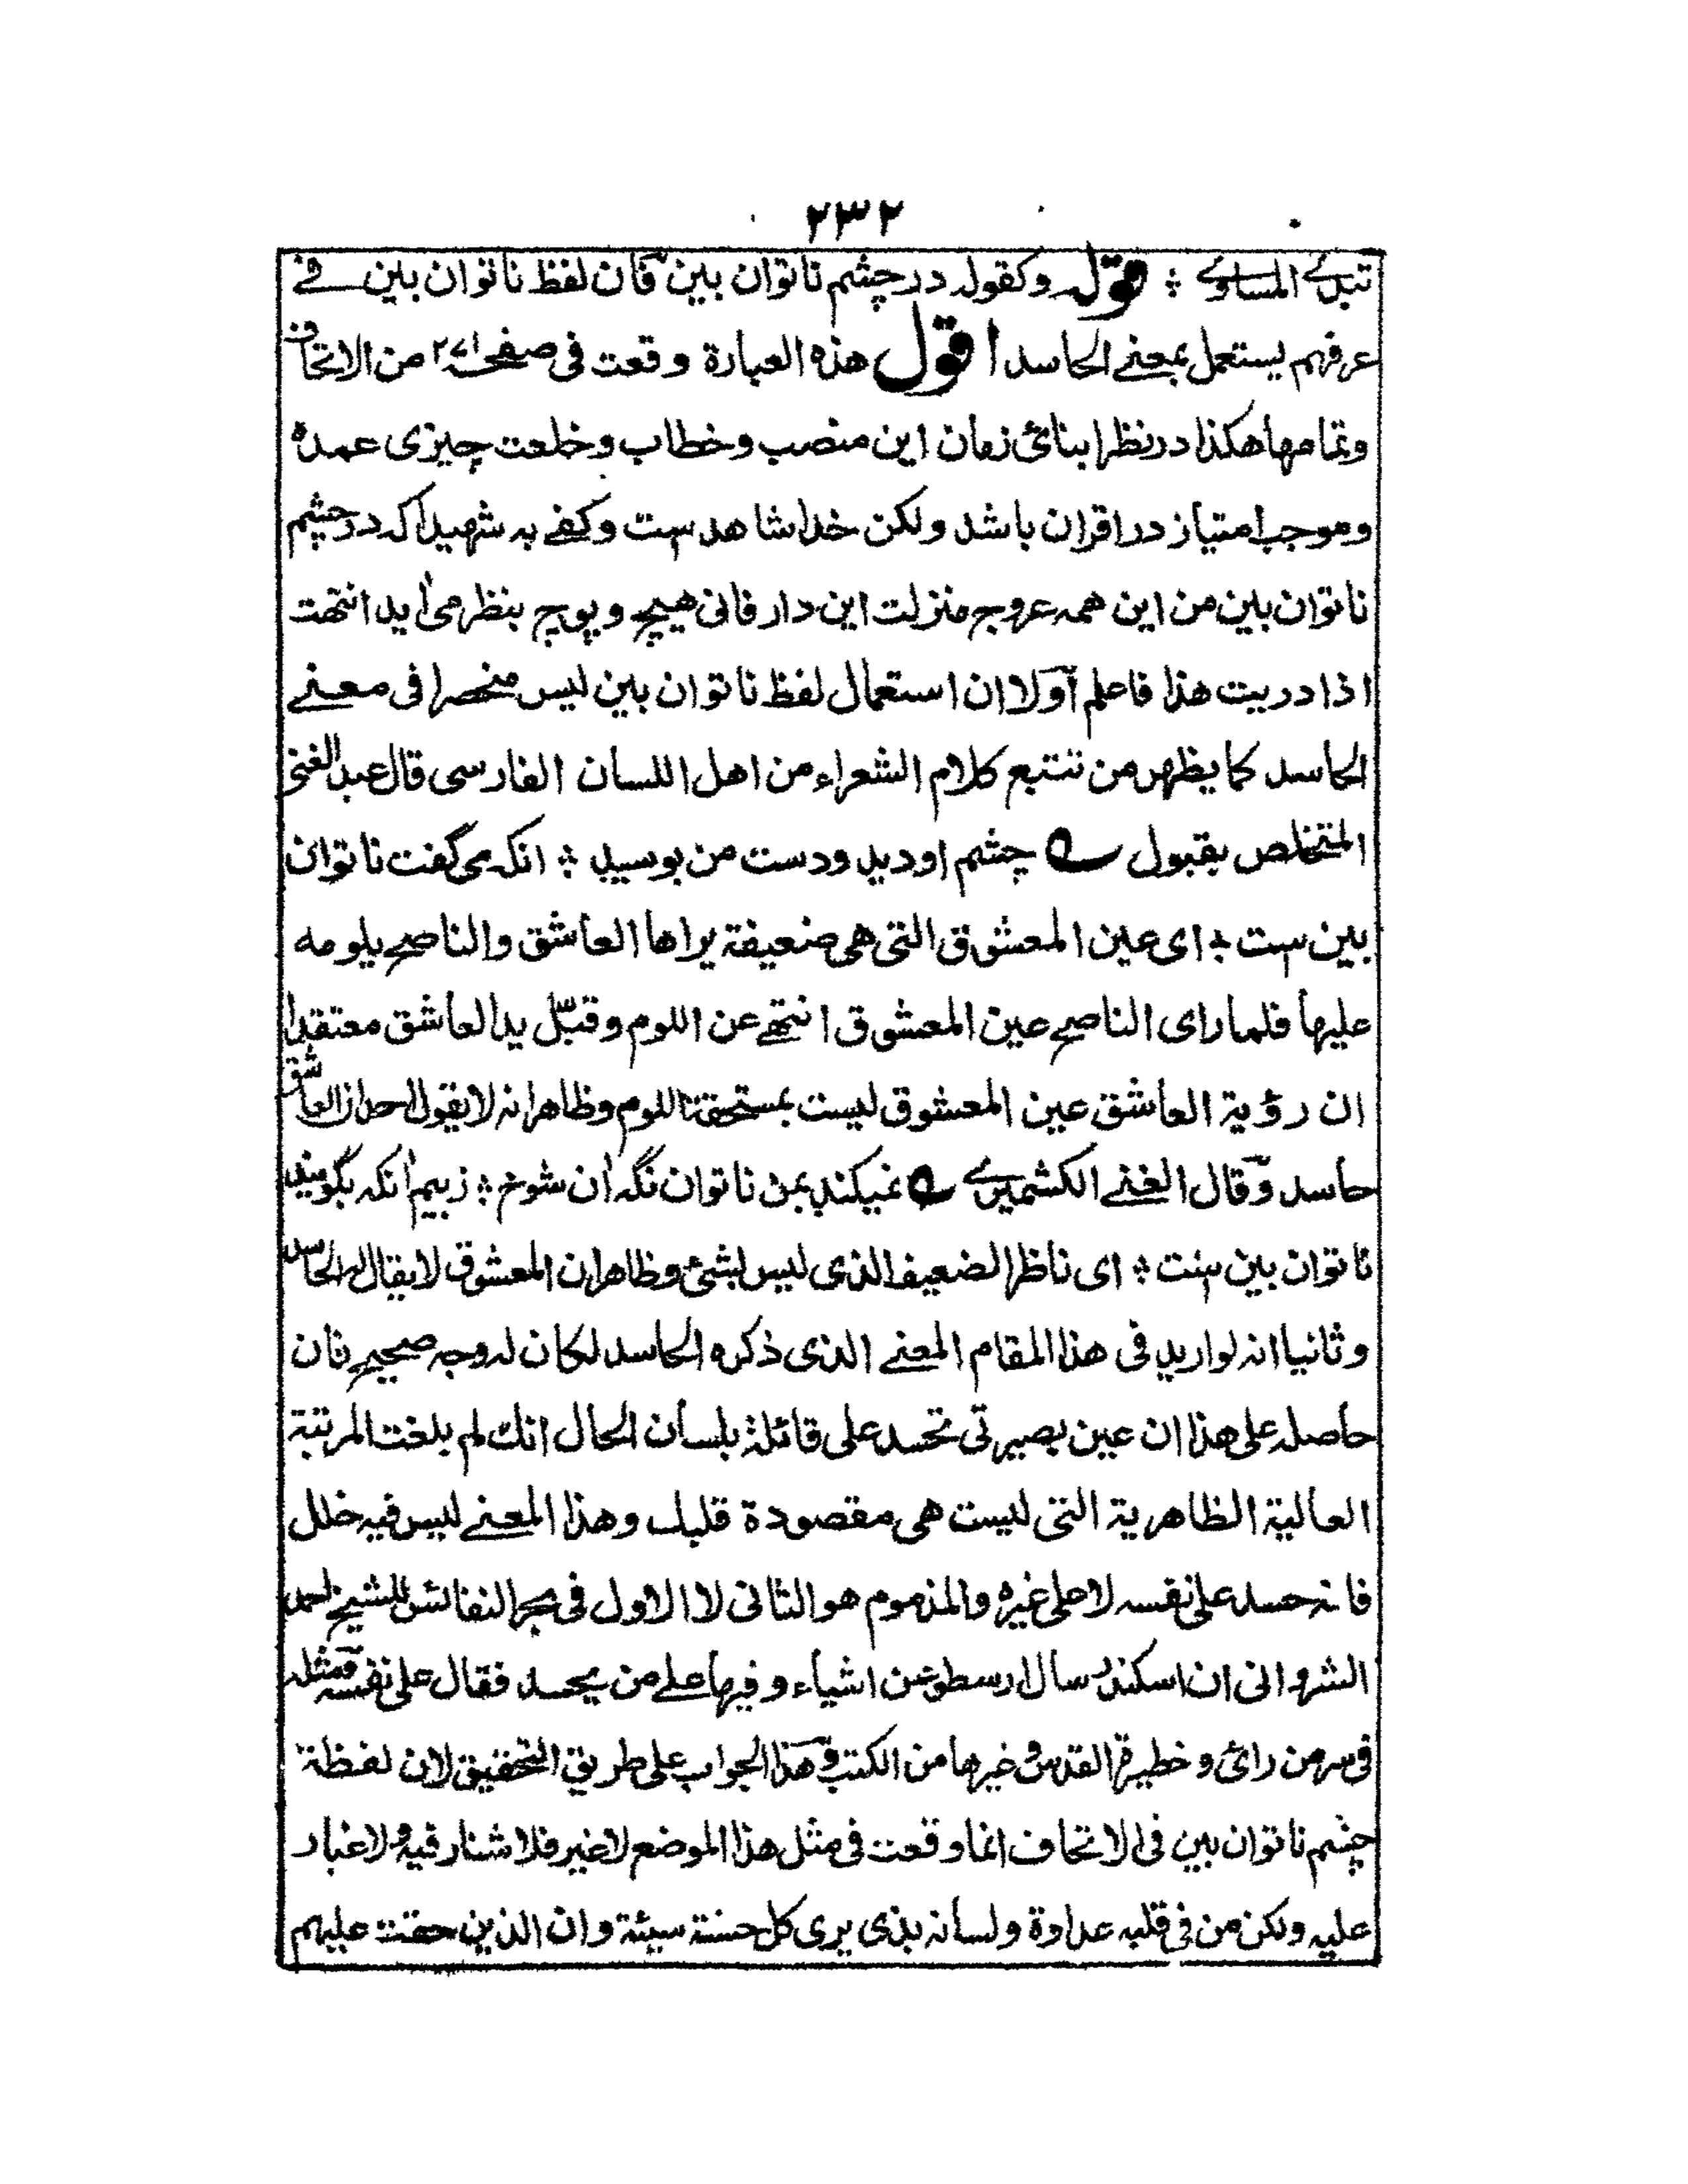 ٢٣٢
تبدے المساوے ؞ قولہ وكقولہ در چشم ناتوان بین فان لفظ ناتوان بین فے
عرفہم یستعمل بمعنے الحاسد اقول ھذہ العبارۃ وقعت فی صفحہ ٢٧١ من الاتحاف
وتمامہا ھكذا در نظر ابنائ زمان این منصب وخطاب وخلعت چیزی عمدہ
وموجب امتیاز در اقران باشد ولكن خدا شاھد ست وكفے بہ شھیدا كہ در چشم
ناتوان بین من این ھمہ عروج منزلت این دار فانی ھیچ وپوچ بنظر می آید انتھت
اذا دریت ھذا فاعلم اولا ان استعمال لفظ ناتوان بین لیس منحصرا فی معنے
الحاسد كما یظھر من تتبع كلام الشعراء من اھل اللسان الفارسی قال عبد الغنی
المتخلص بقبول ے چشم او دید ودست من بوسید ؞ انكہ می گفت ناتوان
بین ست ؞ ای عین المعشوق التی ھی ضعیفۃ یراھا العاشق والناصح یلومہ
علیہا فلما رای الناصح عین المعشوق انتھے عن اللوم وقبّل ید العاشق معتقدا
ان رؤیۃ العاشق عین المعشوق لیست بمستحقۃ اللوم وظاھر انہ لا یقول احد ان العاشق
حاسد وقال الغنے الكشمیرے ے نمیكند بمن ناتوان نگہ ان شوخ ؞ ز بیم انكہ بگویند
ناتوان بین ست ؞ ای ناظر الضعیف الذی لیس بشئ وظاھر ان المعشوق لا یقال لہ الحاسد
وثانیا انہ لو ارید فی ھذا المقام المعنے الذی ذكرہ الحاسد لكان لہ وجہ صحیح فان
حاصلہ علی ھذا ان عین بصیرتی تحسد علی قائلۃ بلسان الحال انك لم بلغت المرتبۃ
العالیۃ الظاھریۃ التی لیست ھی مقصودۃ قلبك وھذا المعنے لیس فیہ خلل
فانہ حسد علی نفسہ لا علی غیرہ والمذموم ھو الثانی لا الاول فی بحر النفائس للشیخ احمد
الشروانی ان اسكندر سال ارسطو عن اشیاء وفیہا علے من یحسد فقال علی نفسہ ومثلہ
فی سر من رائ وخطیرۃ القدس وغیرھا من الكتب وھذا الجواب علی طریق التحقیق لان لفظۃ
چشم ناتوان بین فی الاتحاف انما وقعت فی مثل ھذا الموضع لا غیر فلا شنار فیہ ولا غبار
علیہ ولكن من فی قلبہ عداوۃ ولسانہ بذی یری كل حسنۃ سیئۃ وان الذین حقت علیہم